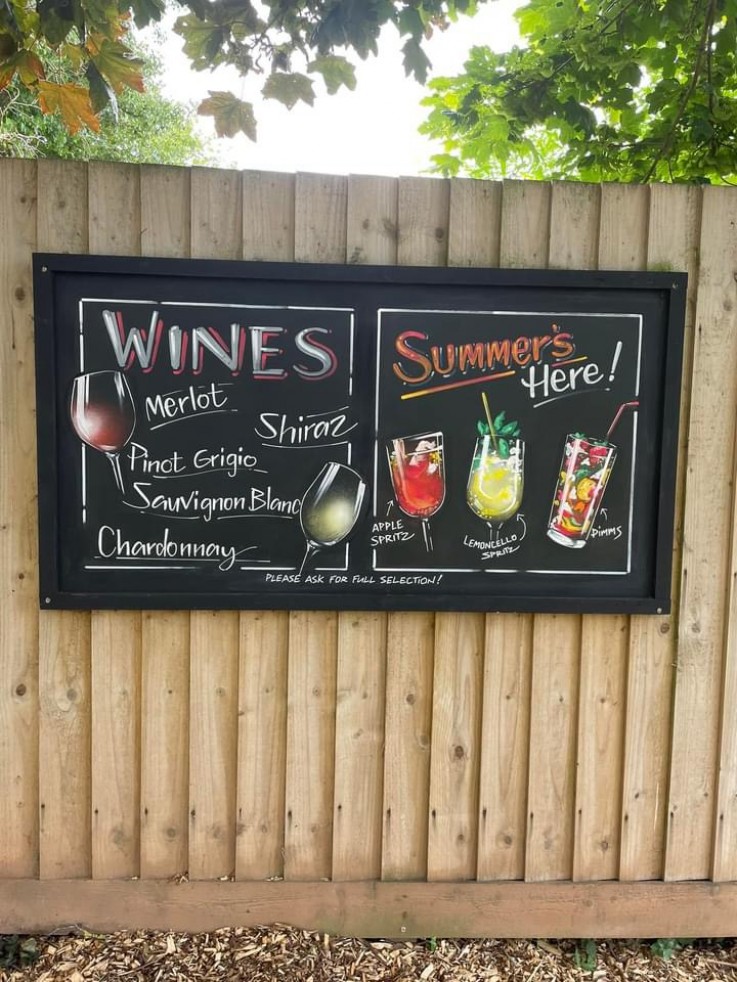 WINES
Merlot
Shiraz
Pinot Grigio
Sauvignon Blanc
Chardonnay
Summer's
Here!
APPLE
SPRITZ
LEMONCELLO
SPRITZ
PIMMS
PLEASE ASK FOR FULL SELECTION!